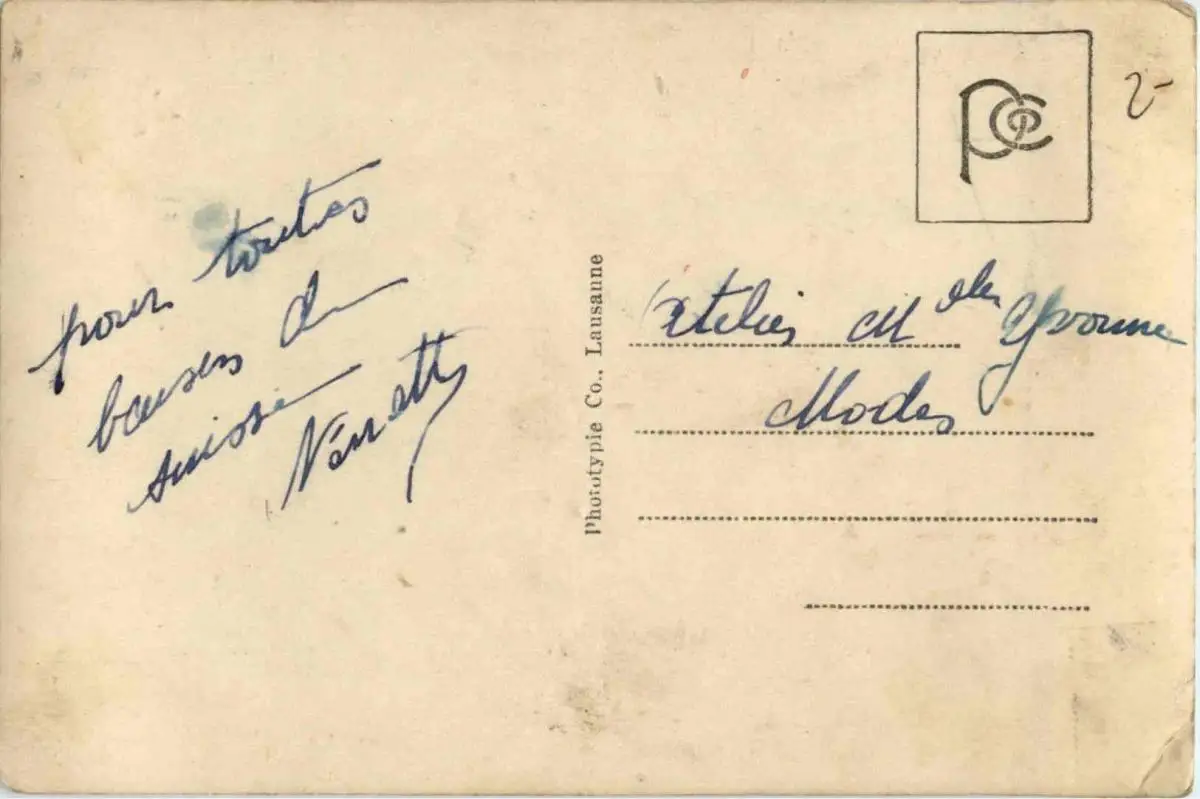 pour toutes
baisers de
suisse
Nanette
Phototypie Co., Lausanne
PCo
2-
Atelier Melle Yvonne
Modes